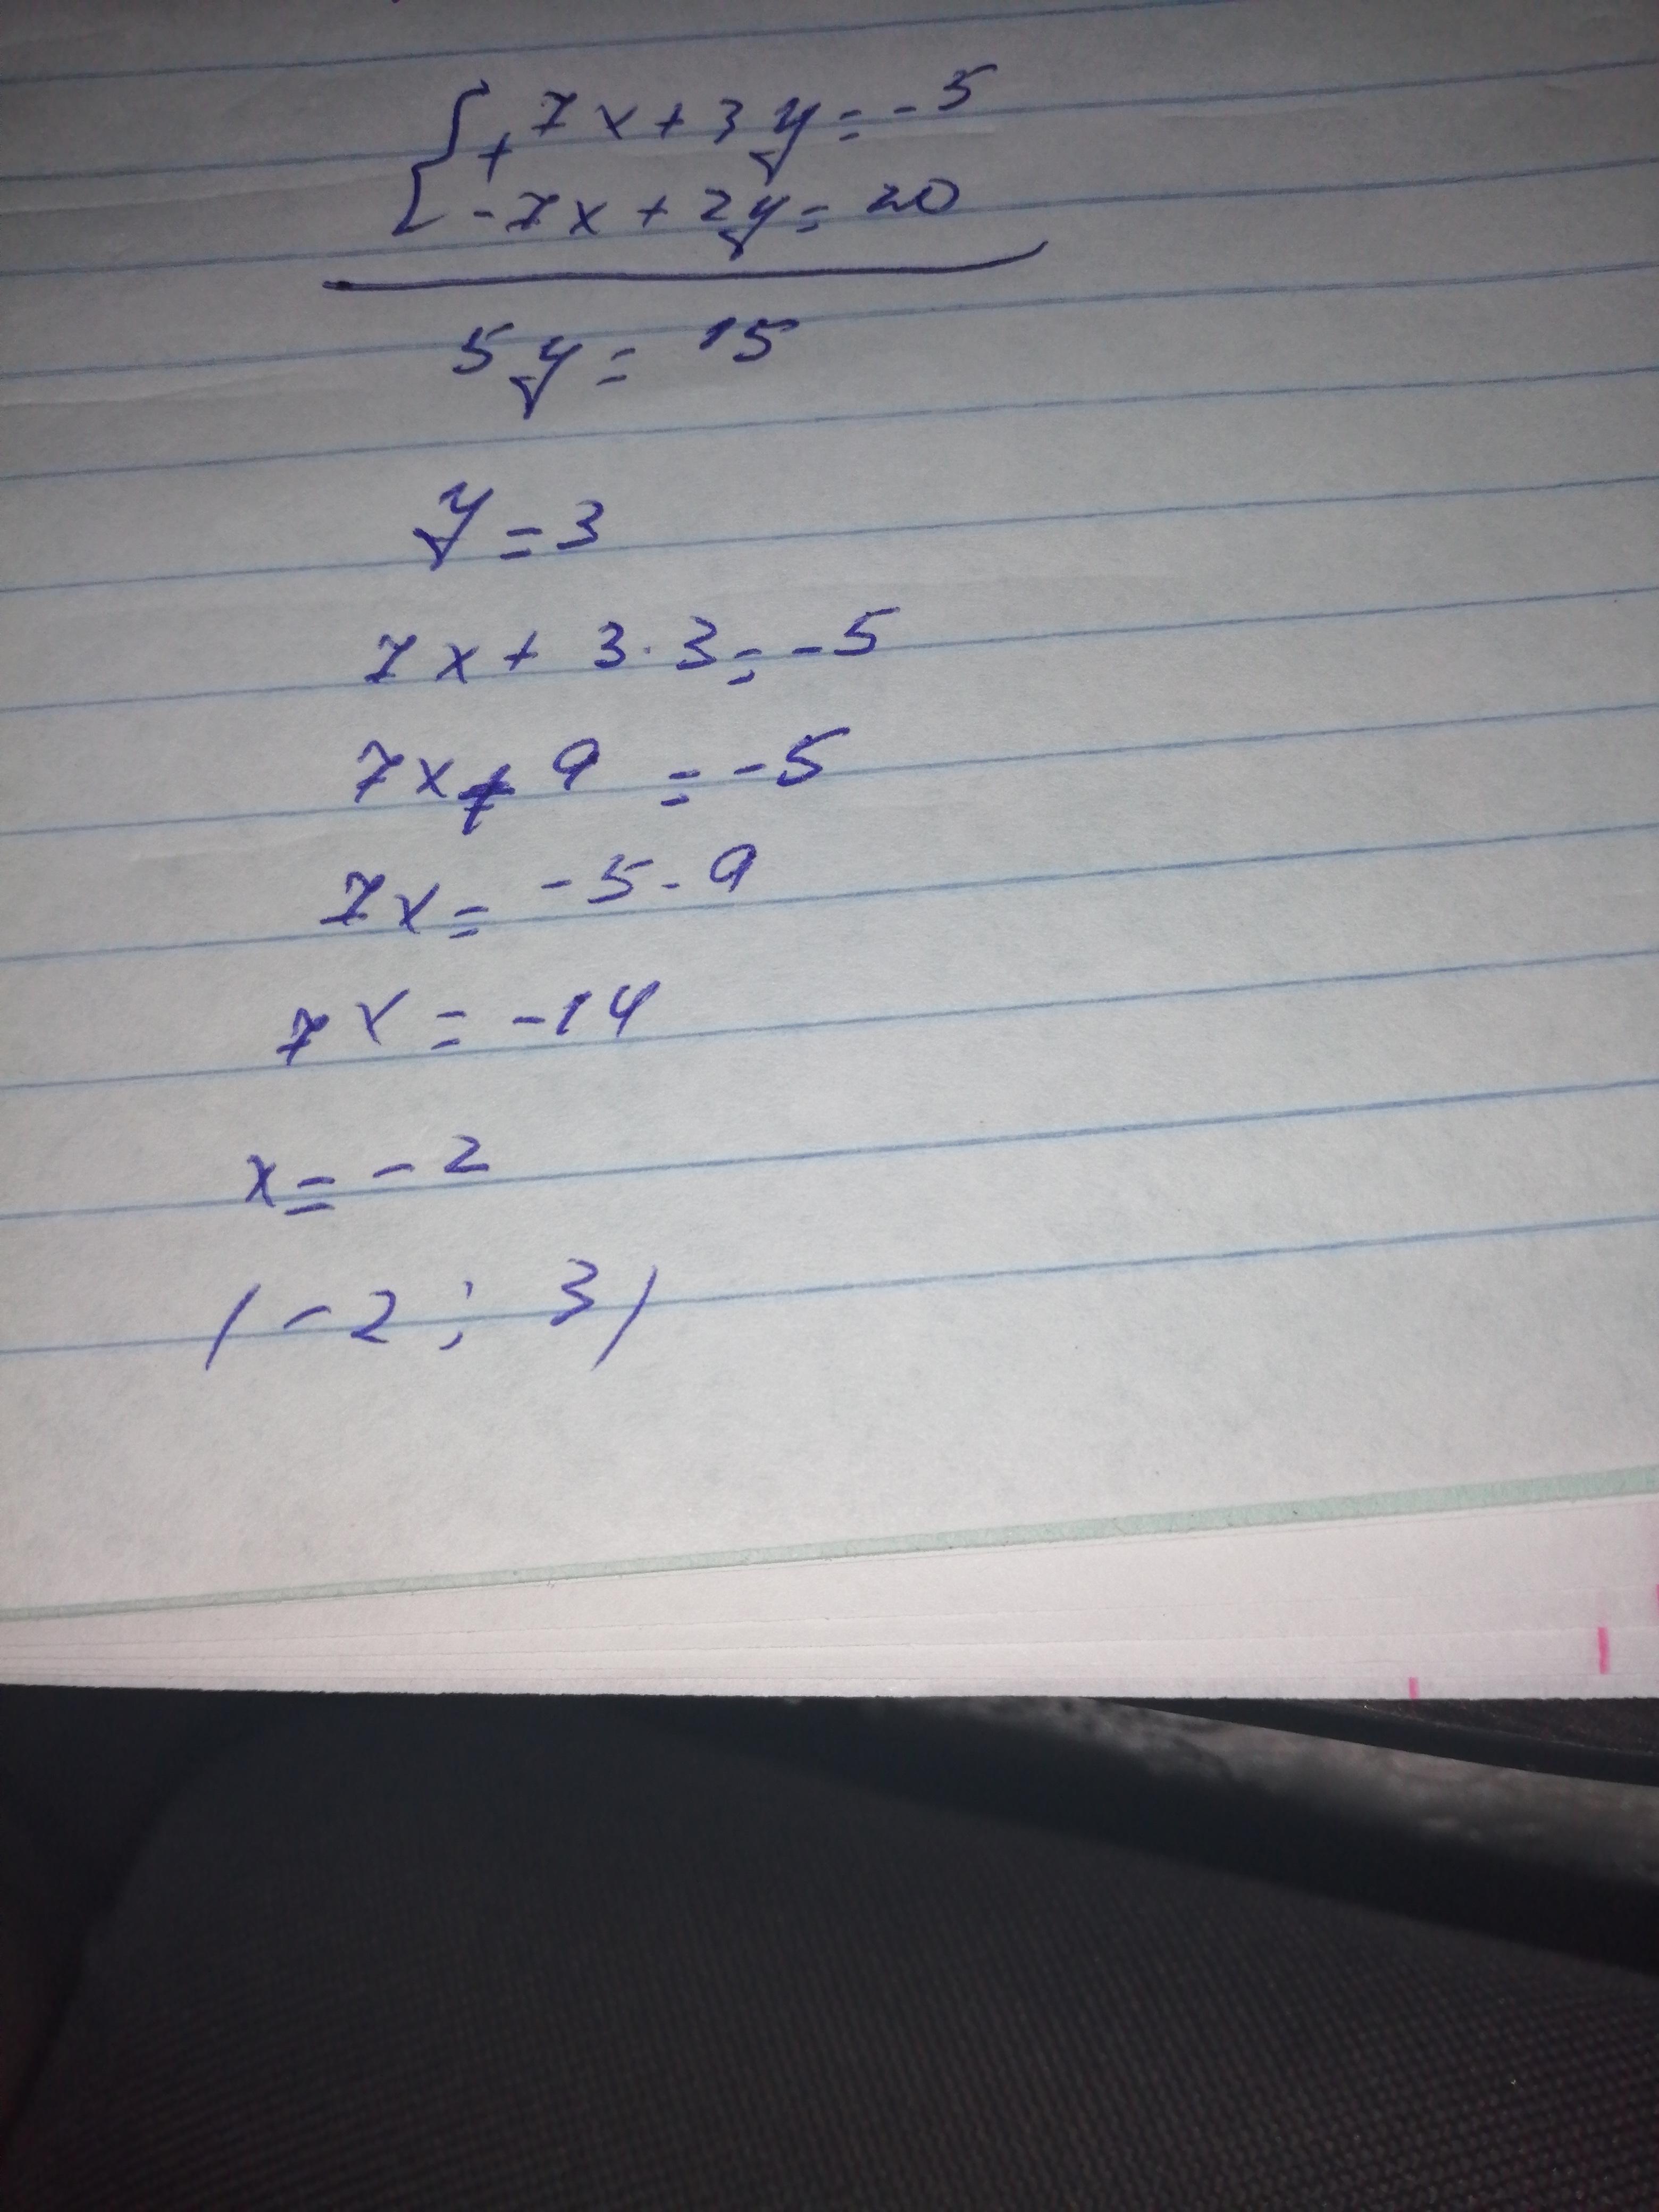 {+ 7x + 3y = -5
-7x + 2y = 20
5y = 15
y = 3
7x + 3·3 = -5
7x + 9 = -5
7x = -5 - 9
7x = -14
x = -2
(-2; 3)